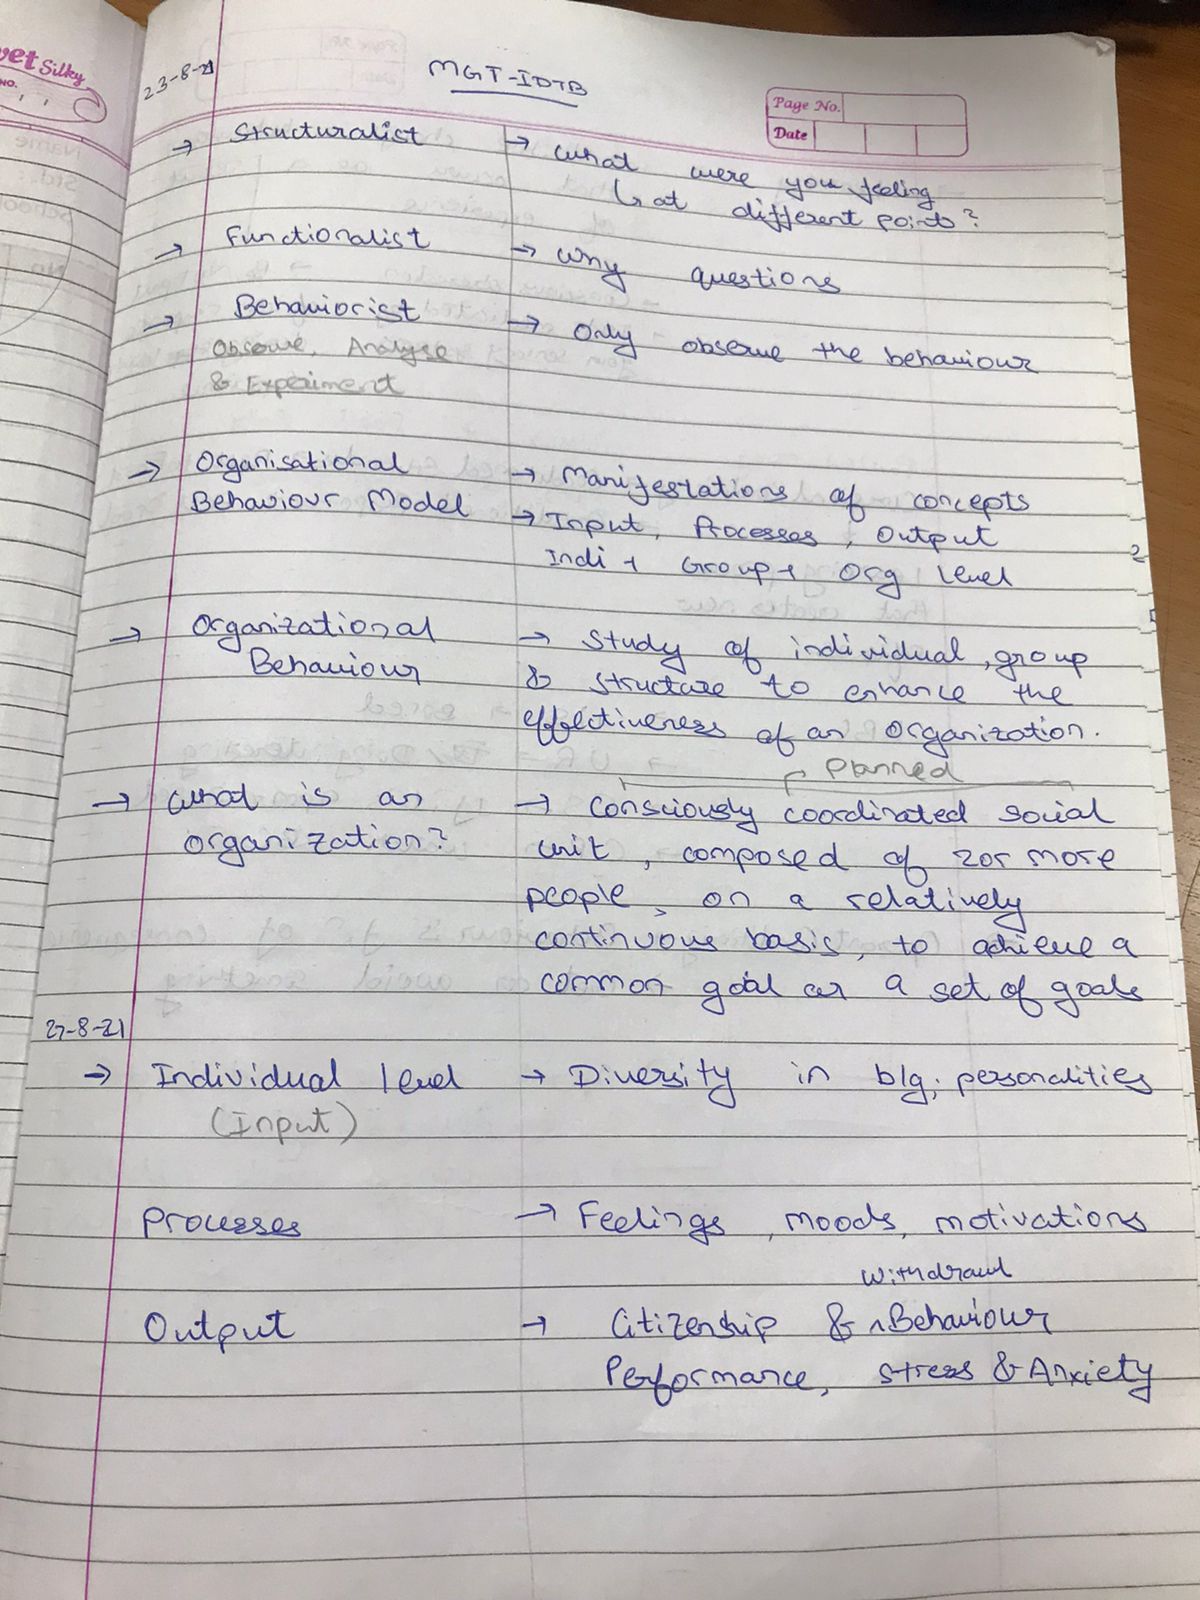 vet Silky
NO.
23-8-21
MGT-IDTB
Page No.
Date
→ Structuralist → What were you feeling
↳ at different points?
→ Functionalist → Why questions
→ Behaviorist → Only observe the behaviour
Observe, Analyse
& Experiment
→ Organisational → Manifestations of concepts
Behaviour Model → Input, Processes, Output
Indi + Group + Org level
→ Organizational → Study of individual, group
Behaviour & structure to enhance the
effectiveness of an organization.
Planned
→ What is an → Consciously coordinated social
organization? unit, composed of 2 or more
people, on a relatively
continuous basis, to achieve a
common goal or a set of goals
27-8-21
→ Individual level → Diversity in b/g; personalities
(Input)
Processes → Feelings, moods, motivations
withdrawl
Output → Citizenship & ^Behaviour
Performance, Stress & Anxiety